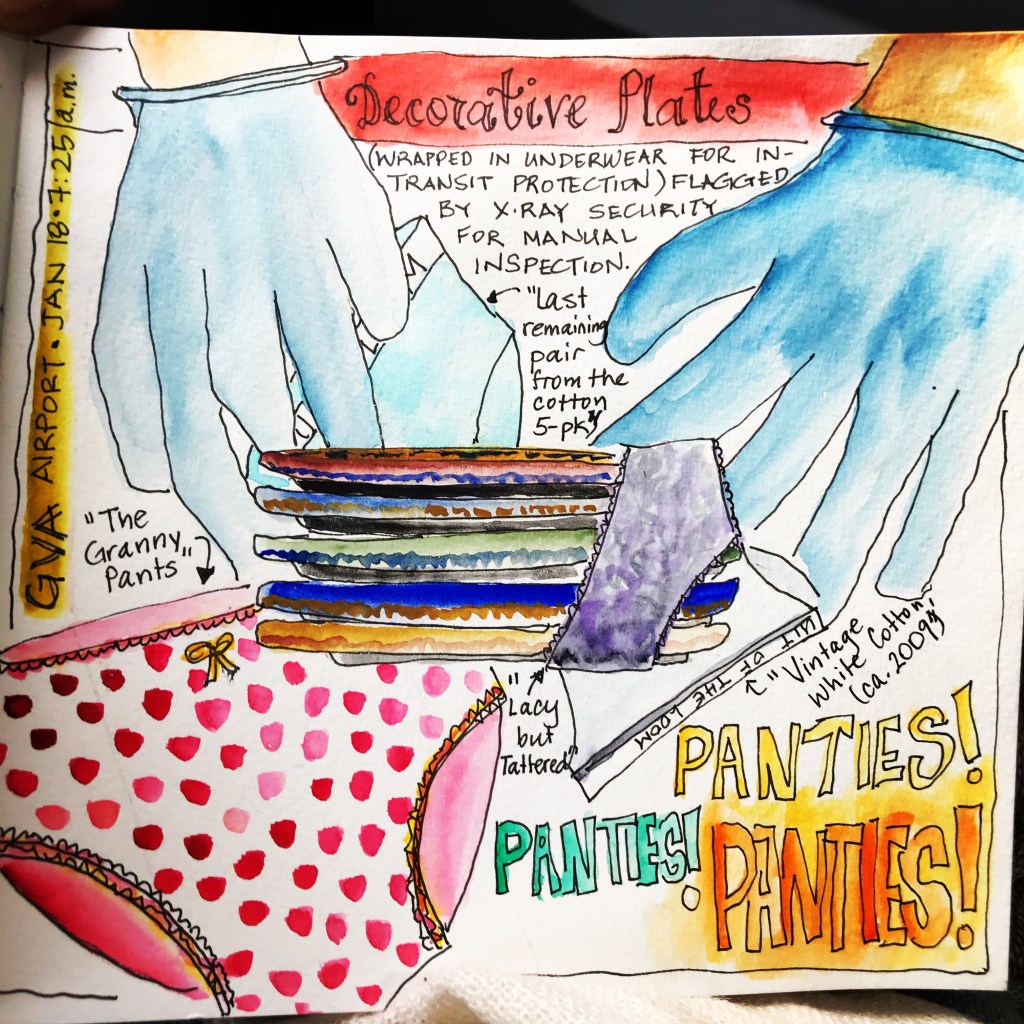 GVA AIRPORT • JAN 18 • 7:25/a.m.
Decorative Plates
(WRAPPED IN UNDERWEAR FOR IN-
TRANSIT PROTECTION) FLAGGED
BY X-RAY SECURITY
FOR MANUAL
INSPECTION.
"Last
remaining
pair
from the
cotton
5-pk"
"The
Granny
Pants"
"Lacy
but
Tattered"
OF THE LOOM
"Vintage
White Cotton"
(ca. 2009)
PANTIES!
PANTIES!
PANTIES!